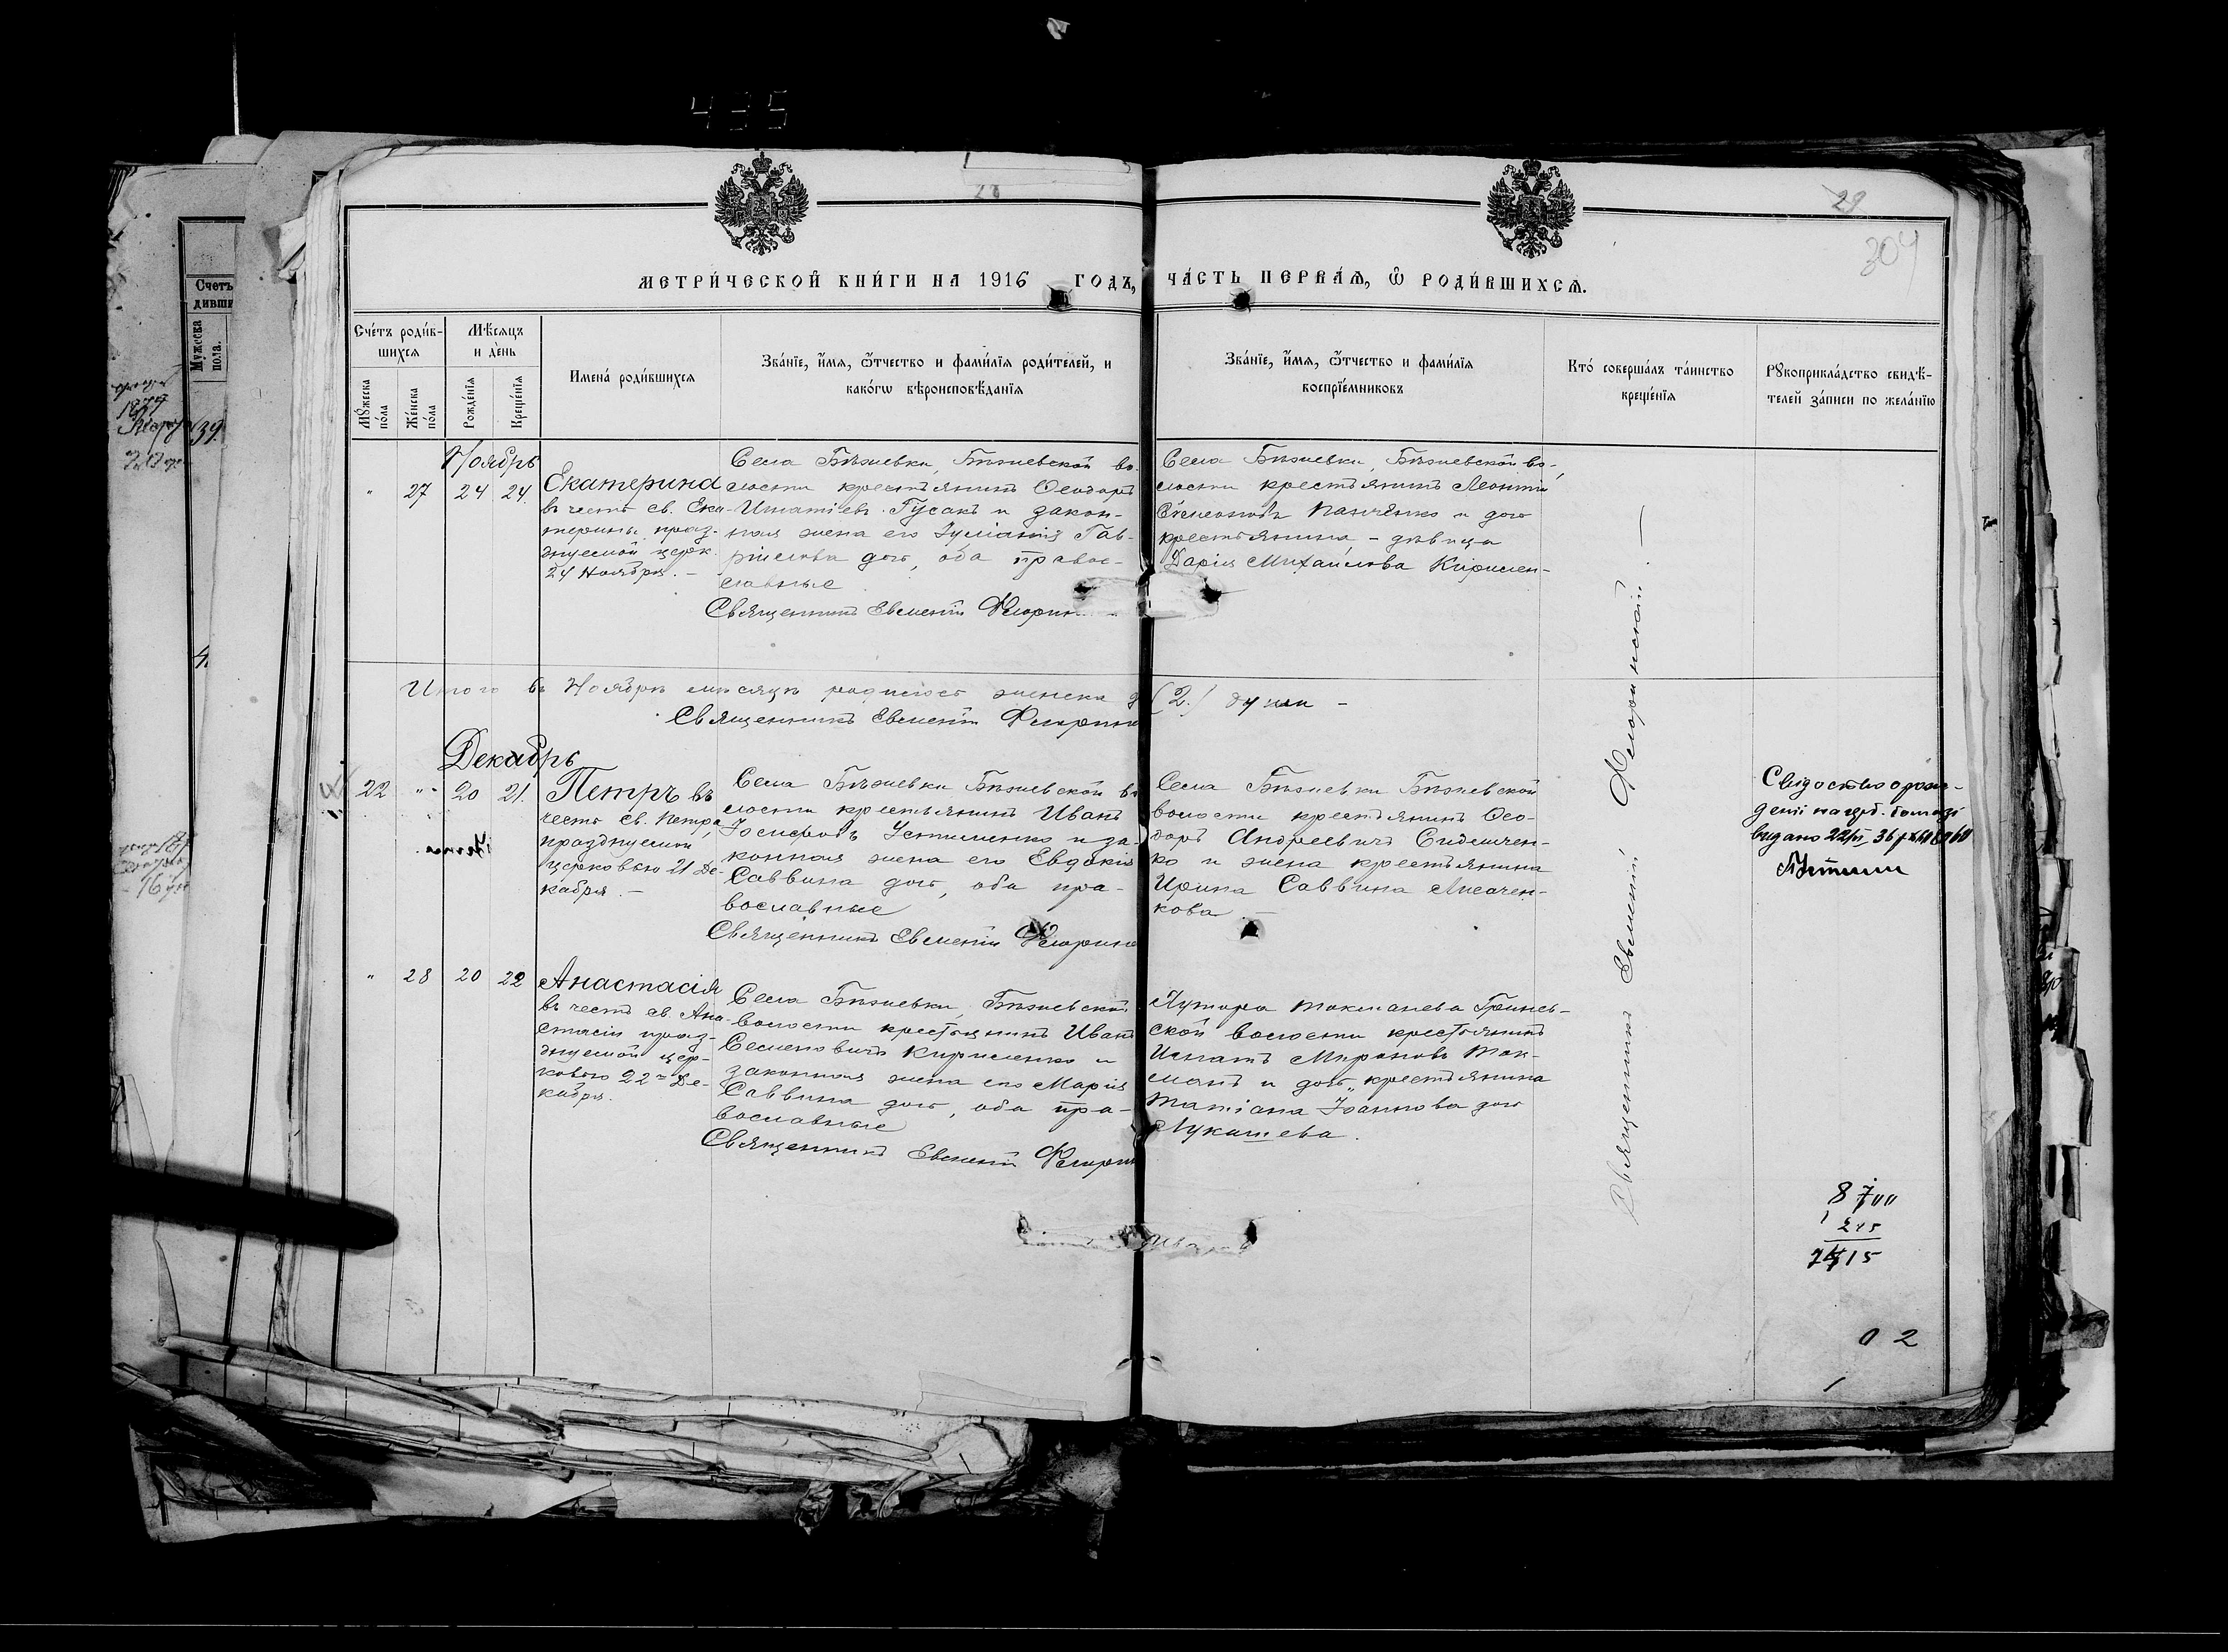 435
28
29
304
МЕТРИ́ЧЕСКОЙ КНИ́ГИ НА 1916 ГОДЪ, ЧА́СТЬ ПЕРВАѦ, Ѿ РОДИ́ВШИХСѦ.
Сче́тъ роди́в-
шихся
Мѣ́сяцъ
и де́нь
Мꙋ́жеска по́ла
Же́нска по́ла
Рожде́нїя
Креще́нїя
Имена́ роди́вшихся
Зва́нїе, и́мя, ѻ́тчество и фами́лїя роди́телей, и
како́гѡ вѣроисповѣ́данїя
Зва́нїе, и́мя, ѻ́тчество и фами́лїя
воспрїе́мниковъ
Кто́ соверша́лъ та́инство
креще́нїя
Рꙋкоприкла́дство свидѣ́-
телей за́писи по жела́нїю
Счетъ
дивши
Мужеска
пола.
Ноябрь
" 27 24 24.
Екатерина
въ честь св. Ека-
терины, праз-
днуемой церк.
24 Ноября. –
Села Бѣзиевки, Бѣзиевской во-
лости крестьянинъ Ѳеодоръ
Игнатіевъ Гусакъ и закон-
ная жена его Іуліанія Гав-
ріилова дочь, оба правос-
лавные
Священникъ Евменій Флорин
Села Бѣзиевки, Бѣзиевской во-
лости крестьянинъ Леонтій
Симеоновъ Панченко и дочь
крестьянина – дѣвица
Дарія Михайлова Кирилен-
Итого въ Ноябрѣ мѣсяцѣ родилось женска (2) души –
Священникъ Евменій Флорин
Декабрь
22 " 20 21.
Петръ въ
честь св. Петра,
празднуемой
церковью 21 Де-
кабря. –
Села Бѣзиевки Бѣзиевской во
лости крестьянинъ Иванъ
Іосифовъ Устименко и за-
конная жена его Евдокія
Саввина дочь, оба пра-
вославные
Священникъ Евменій Флорин
Села Бѣзиевки Бѣзиевской
волости крестьянинъ Ѳео-
доръ Андреевичъ Сидемчен-
ко и жена крестьянина
Ирина Саввина Лисачен-
кова. –
Свідоство о рож-
денії на герб. бомазі
видано
" 28 20 22
Анастасія
въ честь св. Ана-
стасіи праз-
днуемой цер-
ковью 22го Де-
кабря.
Села Бѣзиевки, Бѣзиевской
волости крестьянинъ Иванъ
Семеновичъ Кириленко и
законная жена его Марія
Саввина дочь, оба пра-
вославные
Священникъ Евменій Флорин
Хутора Токманева Гринев-
ской волости крестьянинъ
Игнатъ Мироновъ Ток-
манъ и дочь крестьянина
Татіана Іоаннова дочь
Лукашева.
Священникъ Евменій Флоринскій. –
215
0 2